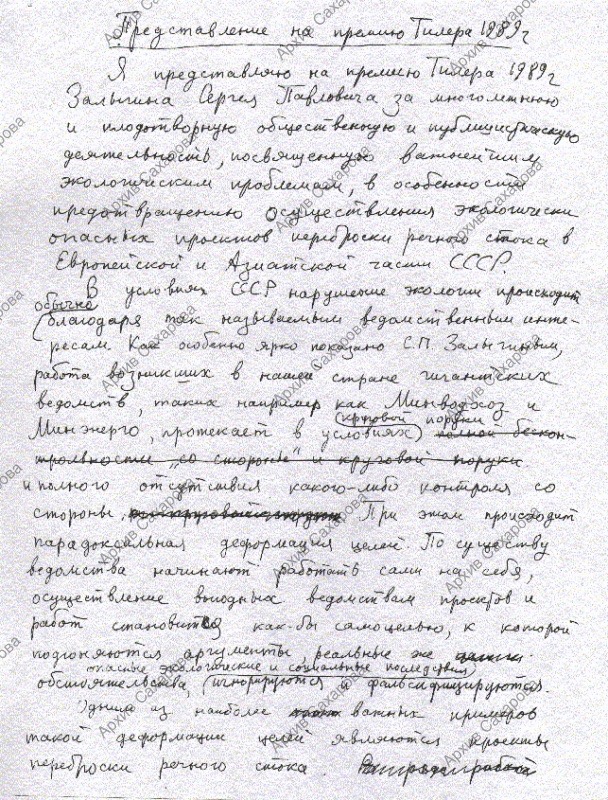 Представление на премию Тилера 1989 г
Я представляю на премию Тилера 1989 г
Залыгина Сергея Павловича за многолетнюю
и плодотворную общественную и публицистическую
деятельность, посвященную важнейшим
экологическим проблемам, в особенности
предотвращению осуществления экологически
опасных проектов переброски речного стока в
Европейской и Азиатской части СССР.
В условиях СССР нарушение экологии происходит
обычно
благодаря так называемым ведомственным инте-
ресам. Как особенно ярко показано С.П. Залыгиным,
работа возникших в нашей стране гигантских
ведомств, таких например как Минводхоз и
круговой поруки
Минэнерго, протекает в условиях полной бескон-
трольности "со стороны" и круговой поруки
и полного отсутствия какого-либо контроля со
стороны. При этом происходит
парадоксальная деформация целей. По существу
ведомства начинают работать сами на себя,
осуществление выгодных ведомствам проектов и
работ становится как-бы самоцелью, к которой
подгоняются аргументы, реальные же
опасные экологические и социальные последствия
обстоятельства, игнорируются и фальсифицируются.
Одним из наиболее важных примеров
такой деформации целей являются проекты
переброски речного стока.
Архив Сахарова